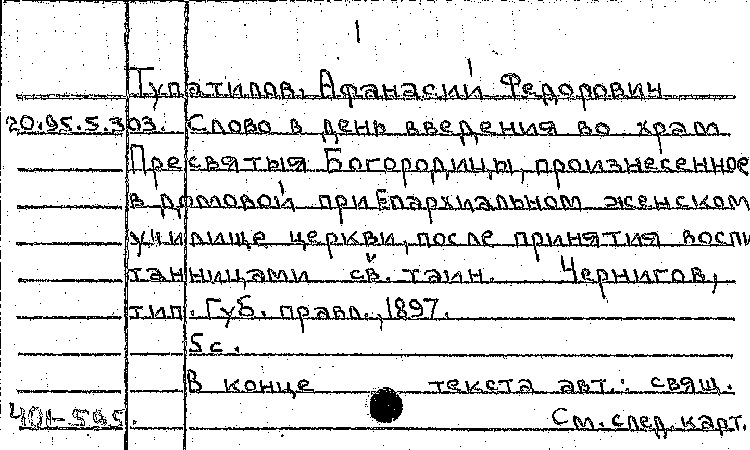 Тупатилов, Афанасий Федорович
20.95.5.303. Слово в день введения во храм
Пресвятыя Богородицы, произнесенное
в домовой при Епархиальном женском
училище церкви, после принятия воспи
танницами св. таин. Чернигов,
тип. Губ. правл., 1897.
5 с.
В конце текста авт.: свящ.
401-595. См. след. карт.